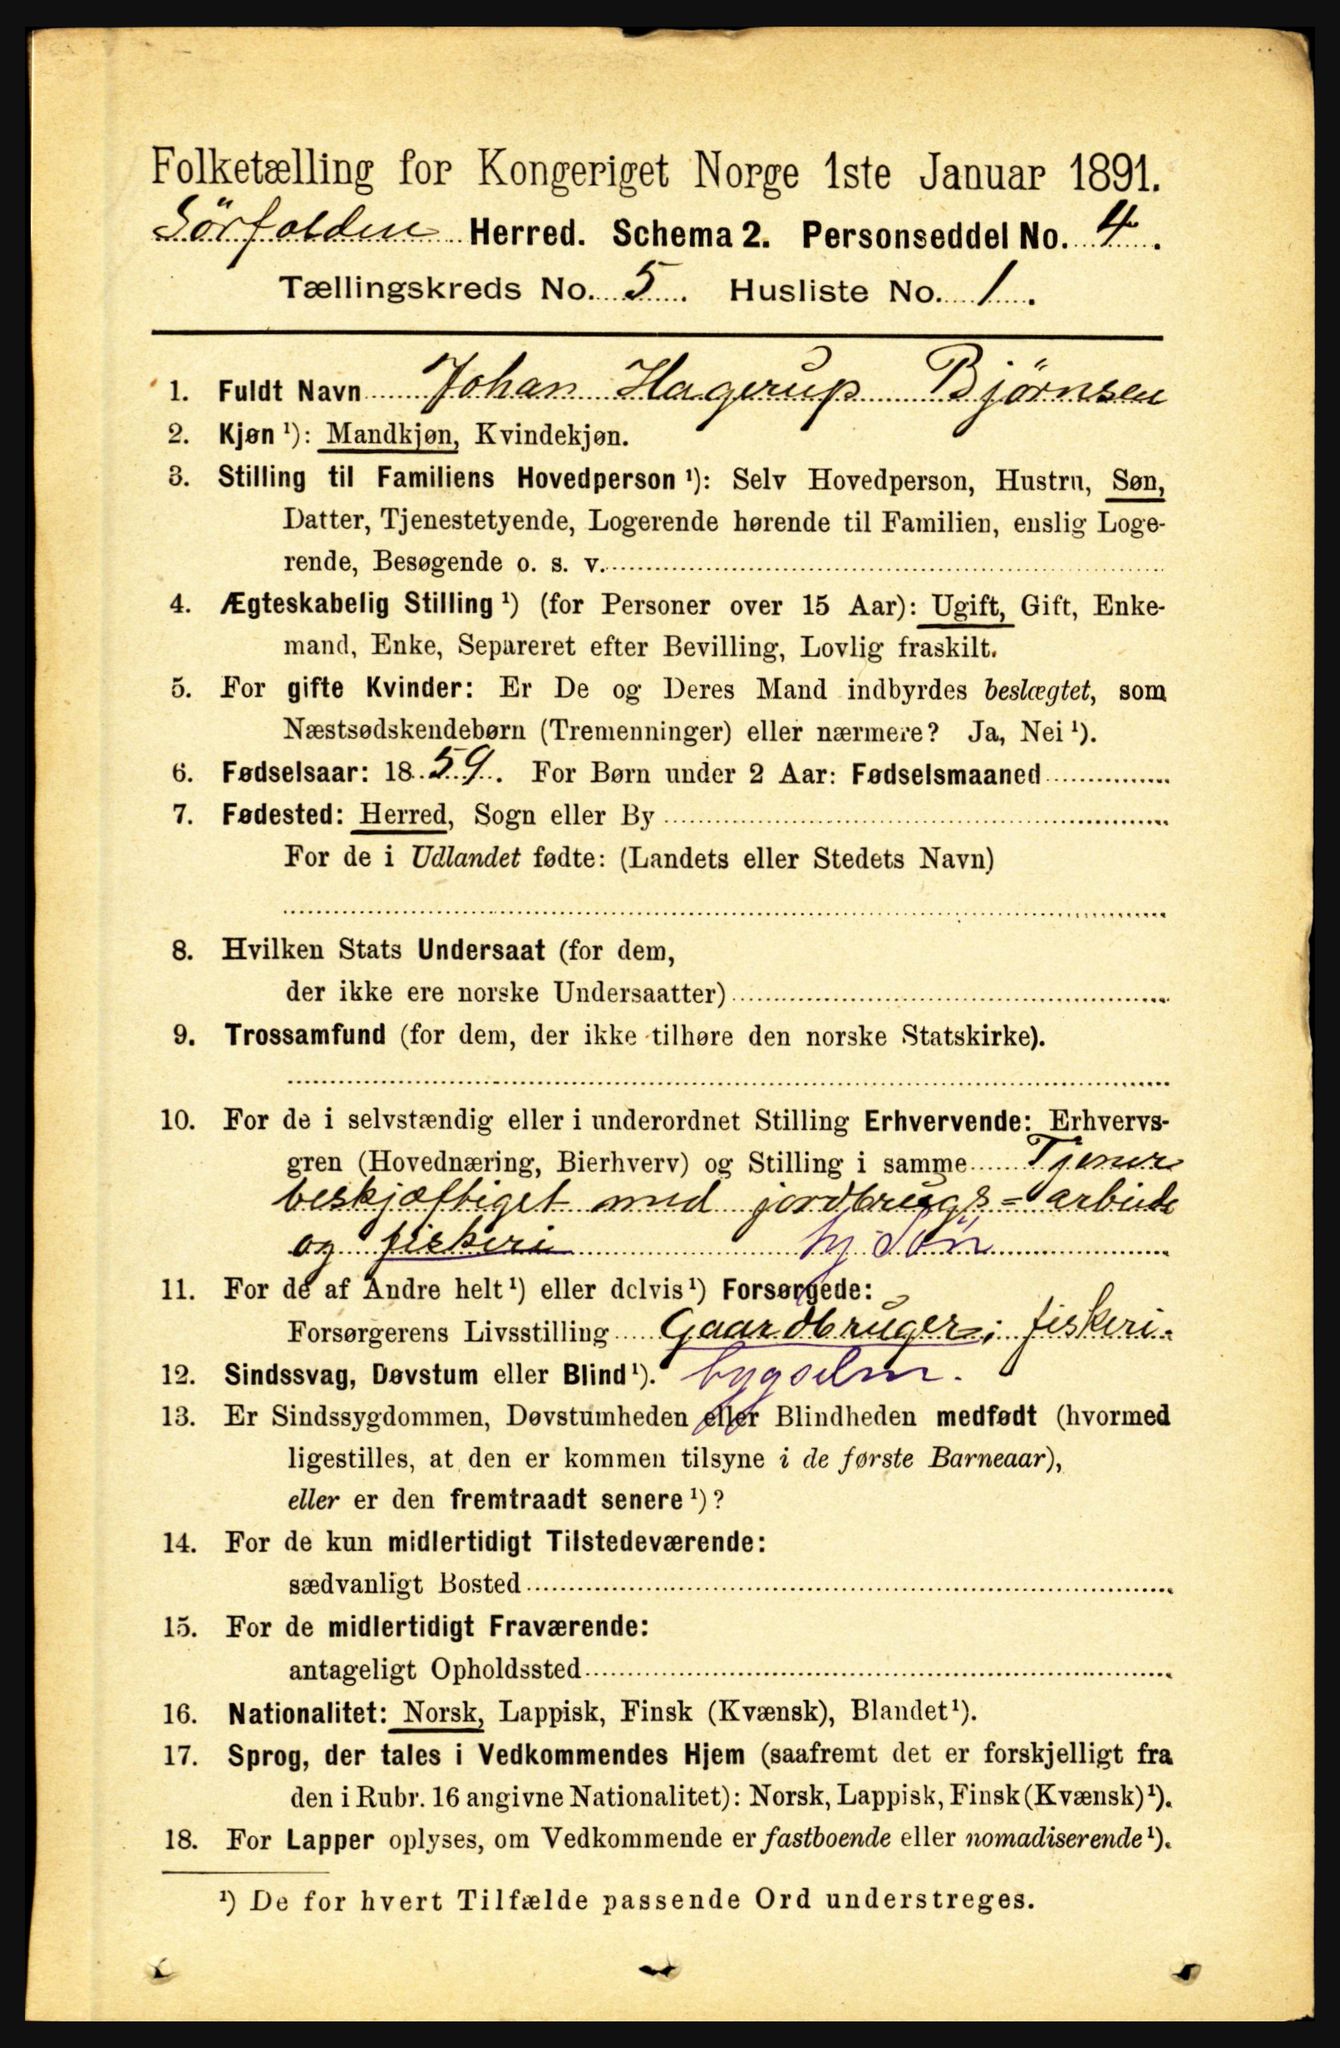 Folketælling for Kongeriget Norge 1ste Januar 1891.
Sörfolden Herred. Schema 2. Personseddel No. 4.
Tællingskreds No. 5. Husliste No. 1.
1. Fuldt Navn Johan Hagerup Bjørnsen
2. Kjøn ¹): Mandkjøn, Kvindekjøn.
3. Stilling til Familiens Hovedperson ¹): Selv Hovedperson, Hustru, Søn,
Datter, Tjenestetyende, Logerende hørende til Familien, enslig Loge-
rende, Besøgende o. s. v.
4. Ægteskabelig Stilling ¹) (for Personer over 15 Aar): Ugift, Gift, Enke-
mand, Enke, Separeret efter Bevilling, Lovlig fraskilt.
5. For gifte Kvinder: Er De og Deres Mand indbyrdes beslægtet, som
Næstsødskendebørn (Tremenninger) eller nærmere? Ja, Nei ¹).
6. Fødselsaar: 1859. For Børn under 2 Aar: Fødselsmaaned
7. Fødested: Herred, Sogn eller By
For de i Udlandet fødte: (Landets eller Stedets Navn)
8. Hvilken Stats Undersaat (for dem,
der ikke ere norske Undersaatter)
9. Trossamfund (for dem, der ikke tilhøre den norske Statskirke).
10. For de i selvstændig eller i underordnet Stilling Erhvervende: Erhvervs-
gren (Hovednæring, Bierhverv) og Stilling i samme Tjener
beskjæftiget med jordbrugs=arbeide
og fiskeri hj Søn
11. For de af Andre helt ¹) eller delvis ¹) Forsørgede:
Forsørgerens Livsstilling Gaardbruger; fiskeri.
12. Sindssvag, Døvstum eller Blind ¹). bygselm.
13. Er Sindssygdommen, Døvstumheden eller Blindheden medfødt (hvormed
ligestilles, at den er kommen tilsyne i de første Barneaar),
eller er den fremtraadt senere ¹)?
14. For de kun midlertidigt Tilstedeværende:
sædvanligt Bosted
15. For de midlertidigt Fraværende:
antageligt Opholdssted
16. Nationalitet: Norsk, Lappisk, Finsk (Kvænsk), Blandet ¹).
17. Sprog, der tales i Vedkommendes Hjem (saafremt det er forskjelligt fra
den i Rubr. 16 angivne Nationalitet): Norsk, Lappisk, Finsk (Kvænsk) ¹).
18. For Lapper oplyses, om Vedkommende er fastboende eller nomadiserende ¹).
¹) De for hvert Tilfælde passende Ord understreges.